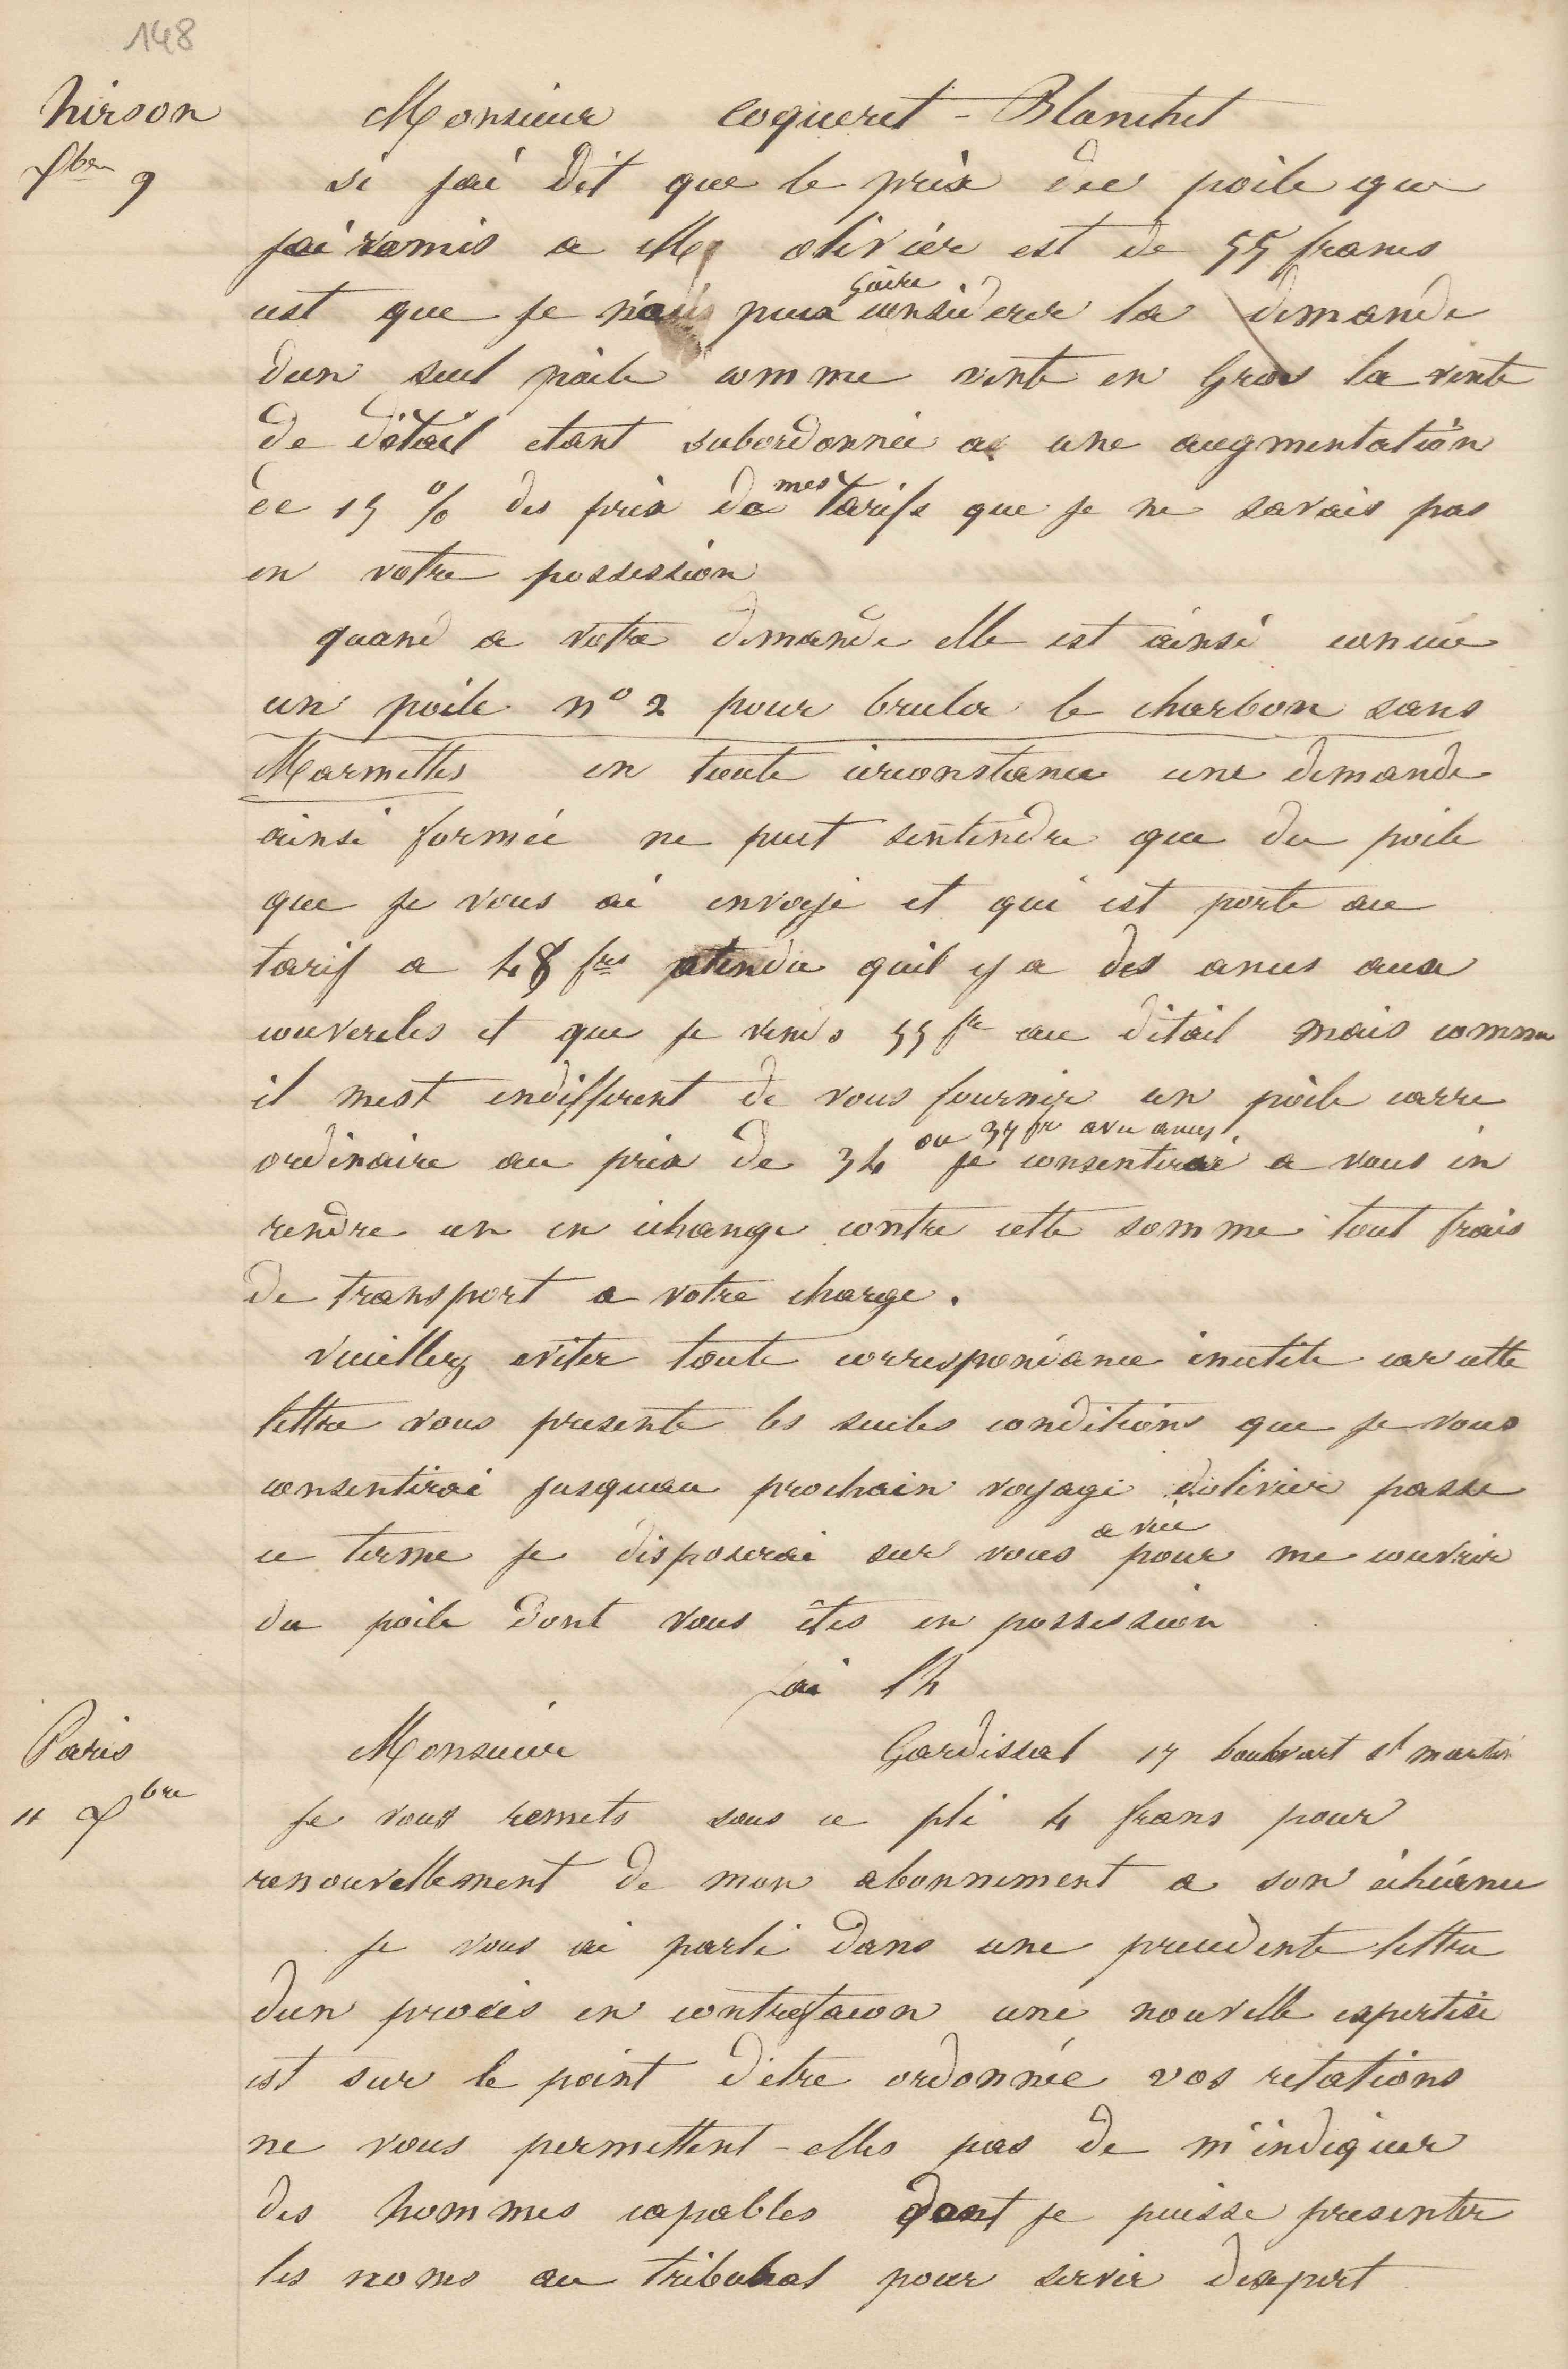 148
hirson
Xbre 9
Monsieur Coqueret - Blanchet
si jai dit que le prix du poile que
jai remis a Mr olivier est de 55 francs
cest que je n'ai pour considerer la demande
dun seul poile comme vente en Gros la vente
de détail etant subordonnée a une augmentation
de 15 % des prix de mes tarifs que je ne savais pas
en votre possession
quand a votre demande elle est ainsi concue
un poile n° 2 pour bruler le charbon sans
Marmittes en toute circonstance une demande
ainsi formée ne peut sentendre que du poile
que je vous ai envoyé et qui est porte au
tarif a 48 frs atendu quil y a des ances aux
couvercles et que je vends 55 fr au détail mais comme
il mest indifferent de vous fournir un poile carre
ordinaire au prix de 34 ou 35 fr avec ances je consentirai a vous en
rendre un en echange contre cette somme tout frais
de transport a votre charge.
veuillez eviter toute correspondance inutile car cette
lettre vous presente les seules conditions que je vous
consentirai jusquau prochain voyage dolivier passe
ce terme je disposerai sur vous a vue pour me couvrir
du poile dont vous êtes en possession
jai lh
Paris
11 Xbre
Monsieur Gardissal 17 boulevart st martin
je vous remets sous ce pli 4 frans pour
renouvellement de mon abonnement a son echéance
je vous ai parlé dans une precedente lettre
dun procés en contrefacon une nouvelle expertise
est sur le point d'etre ordonnée vos relations
ne vous permettent-elles pas de m'indiquer
des hommes capables dont je puisse presenter
les noms au tribunal pour servir dexpert